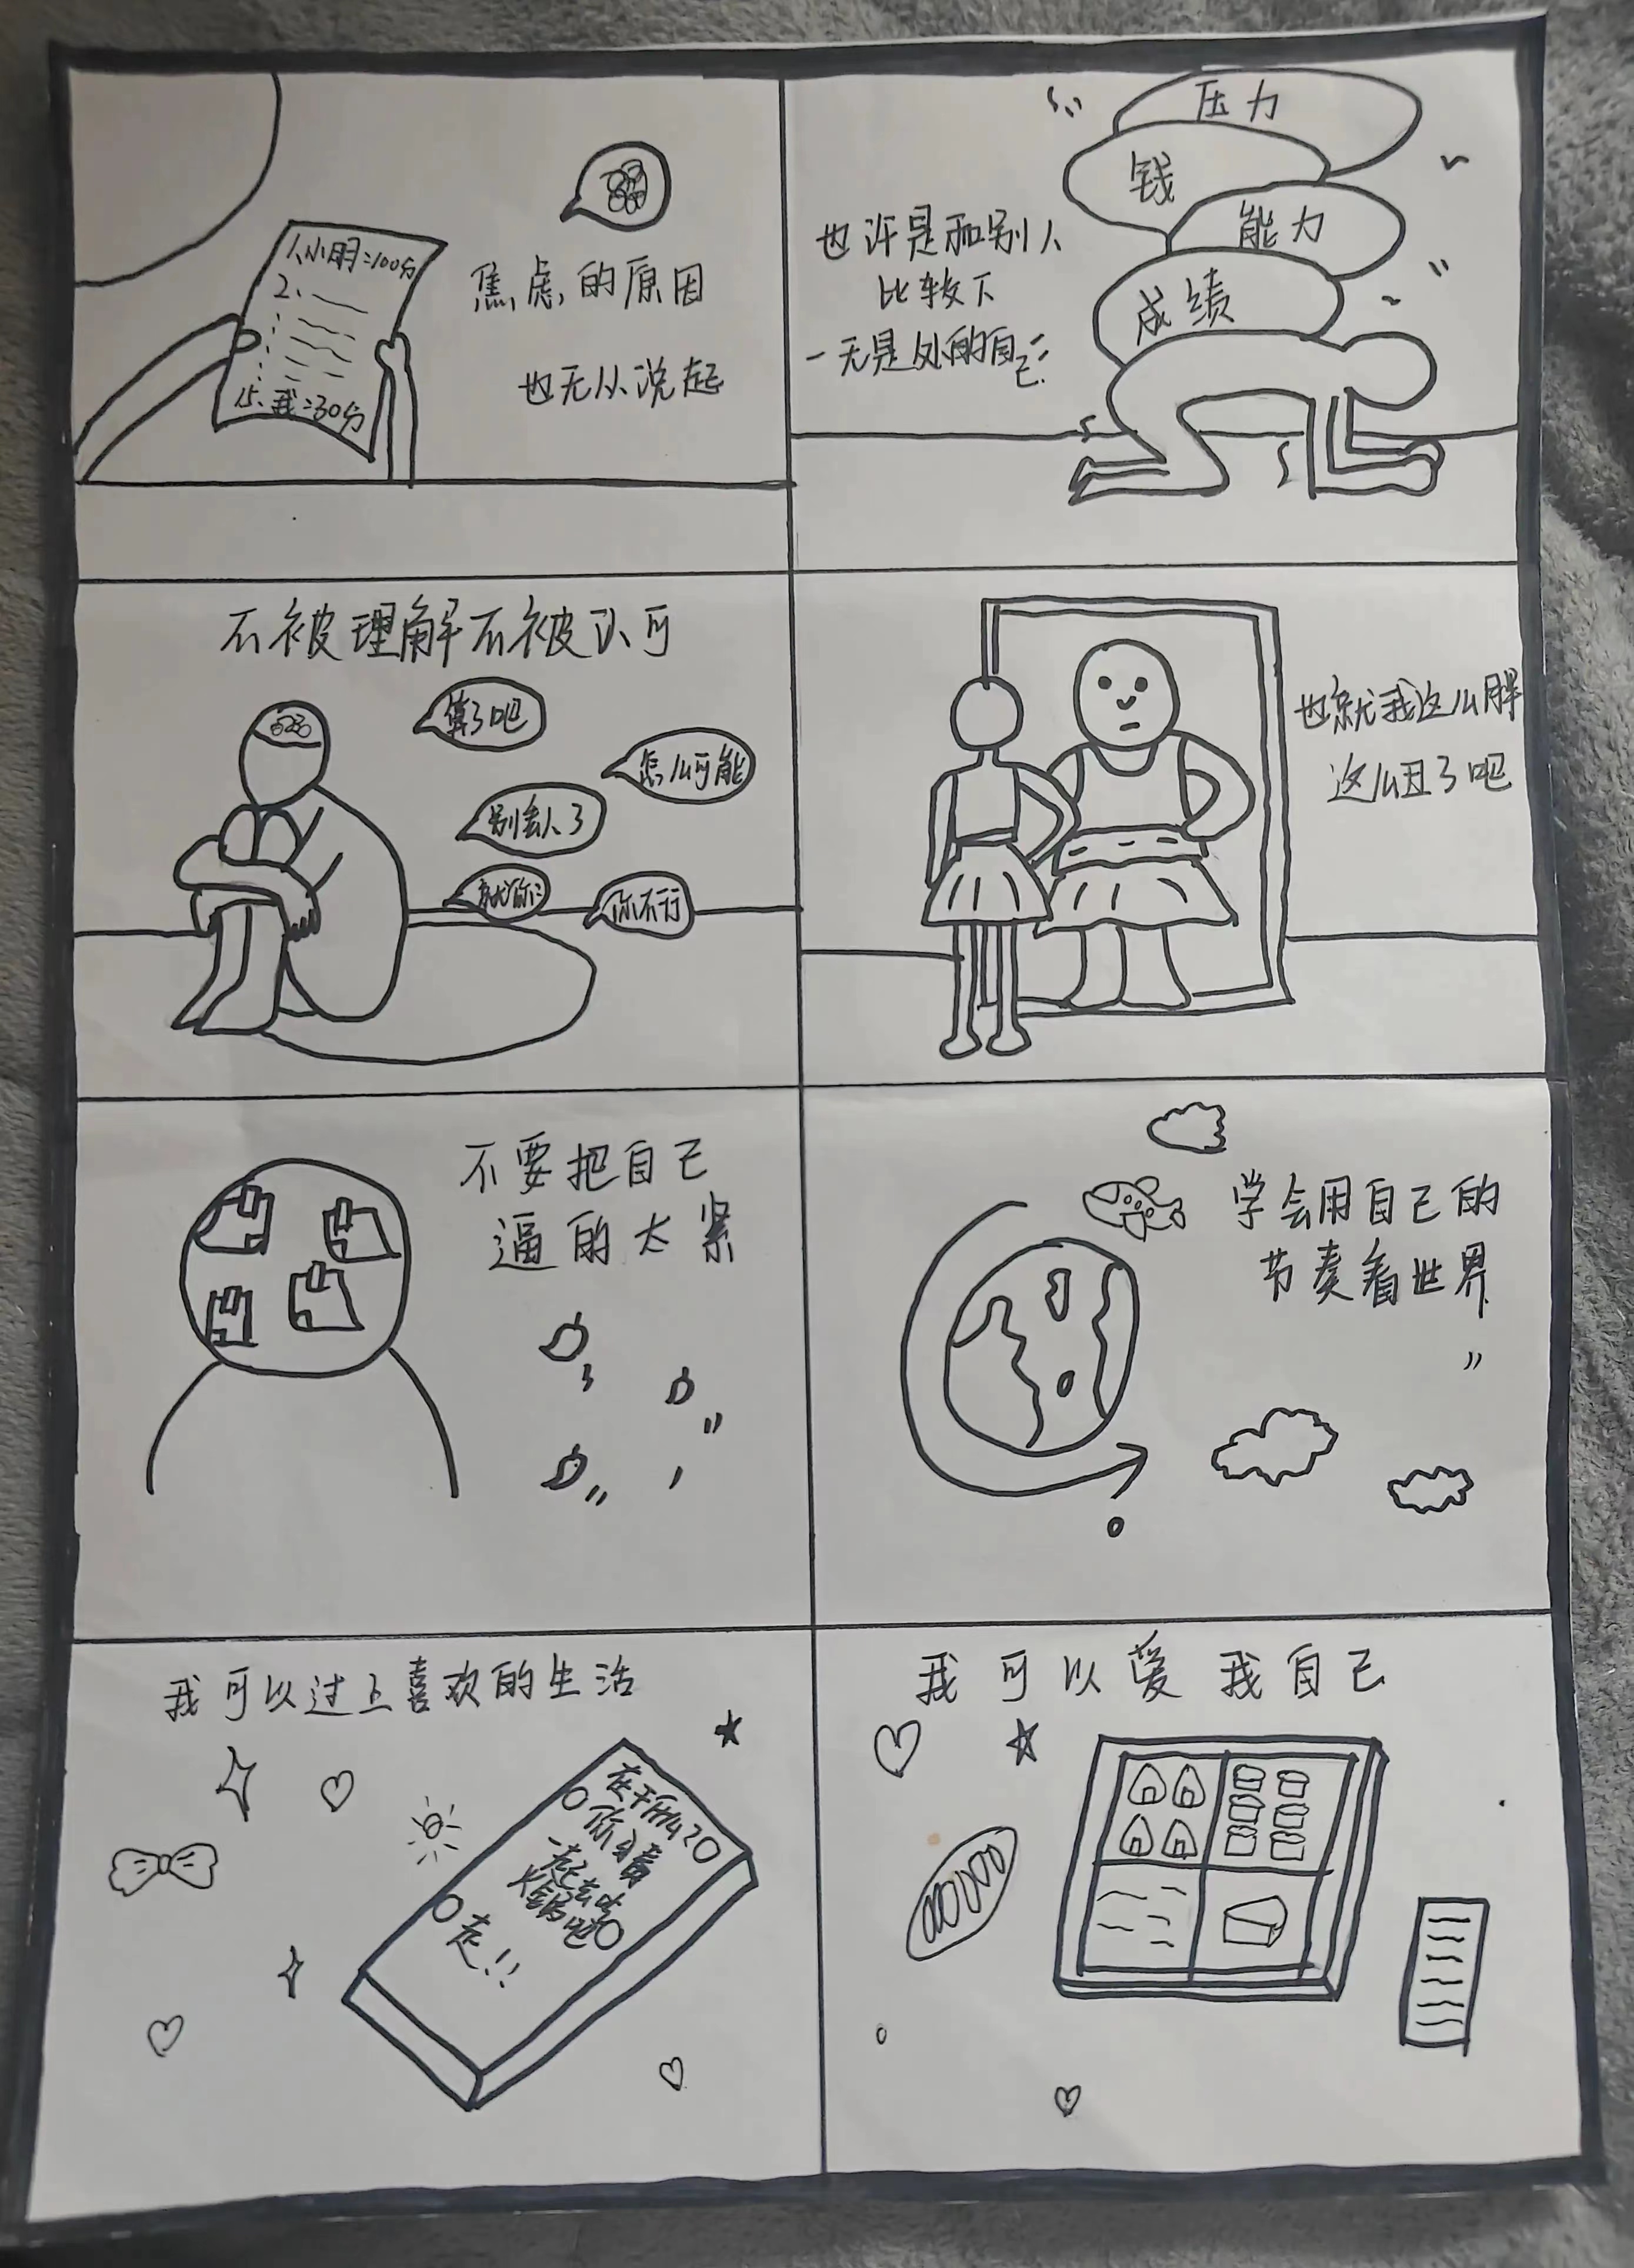 1、小明:100分
2、
15、我:30分
焦虑的原因
也无从说起
压力
钱
能力
成绩
也许是和别人
比较下
一无是处的自己
不被理解不被认可
算了吧
怎么可能
别会人了
就你
你不行
也就我这么胖
这么丑了吧
不要把自己
逼的太紧
学会用自己的
节奏看世界
我可以过上喜欢的生活
一起去吃
火锅吧
走!!
我可以爱我自己